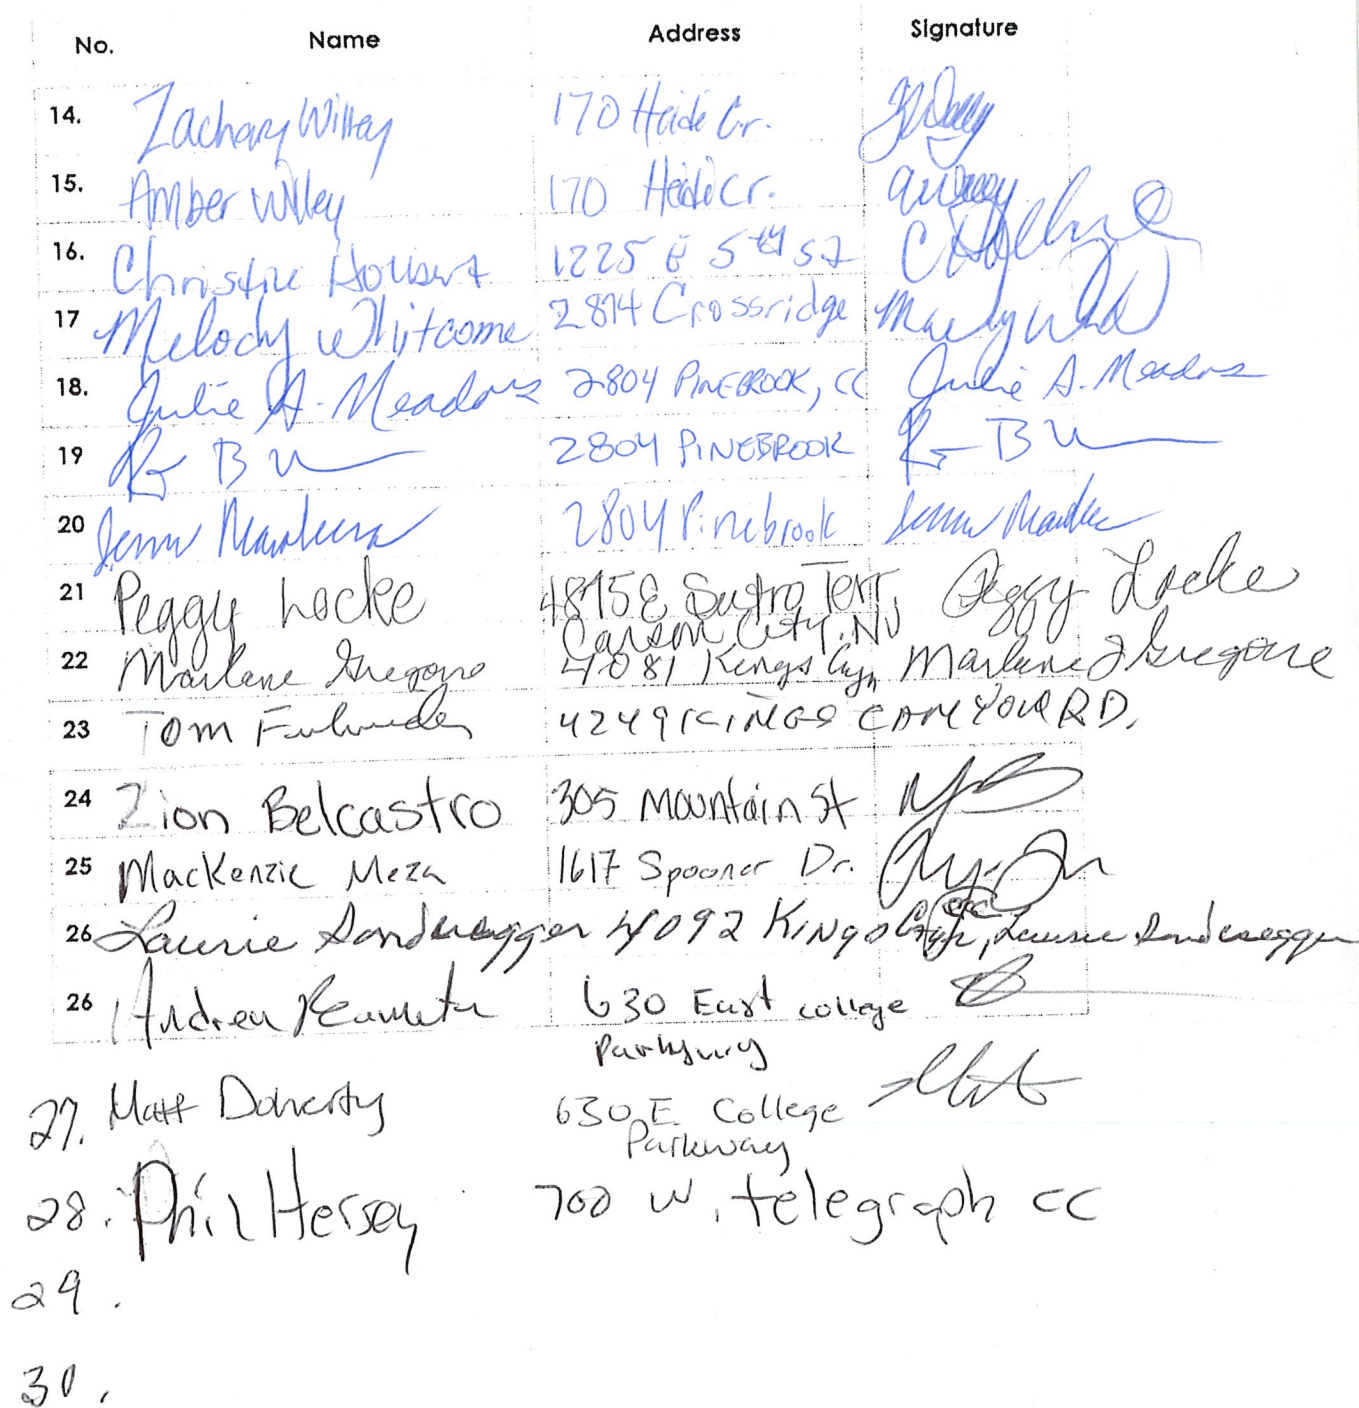 No. Name Address Signature
14. Zachary Willey 170 Heidi Cr.
15. Amber Willey 170 Heidi Cr.
16. Christie 1225 E 5th St
17 Melody Whitcome 2814 Crossridge
18. Julie A. Meadors 2804 PINEBROOK, CC Julie A. Meadors
19 2804 PINEBROOK
20 2804 Pinebrook
21 Peggy Locke 4875 E Sutro Terr. Peggy Locke
Carson City, NV
22 Marlene Gregoire 4081 Kings Cyn Marlene J Gregoire
23 Tom 4249 KINGS CANYON RD.
24 Zion Belcastro 305 Mountain St
25 MacKenzie Meza 1617 Spooner Dr.
26 Laurie 4092 Kings Laurie
26 Andrea 630 East college
Parkway
27. Matt Doherty 630 E. College
Parkway
28. Phil Hersey 700 W. telegraph CC
29.
30.